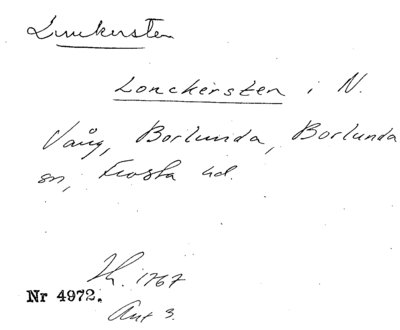 Lunkersten
Lonckersten i N.
Vång, Borlunda, Borlunda
sn, Frosta hd.
Lh. 1767
Nr 4972.
Akt 3.